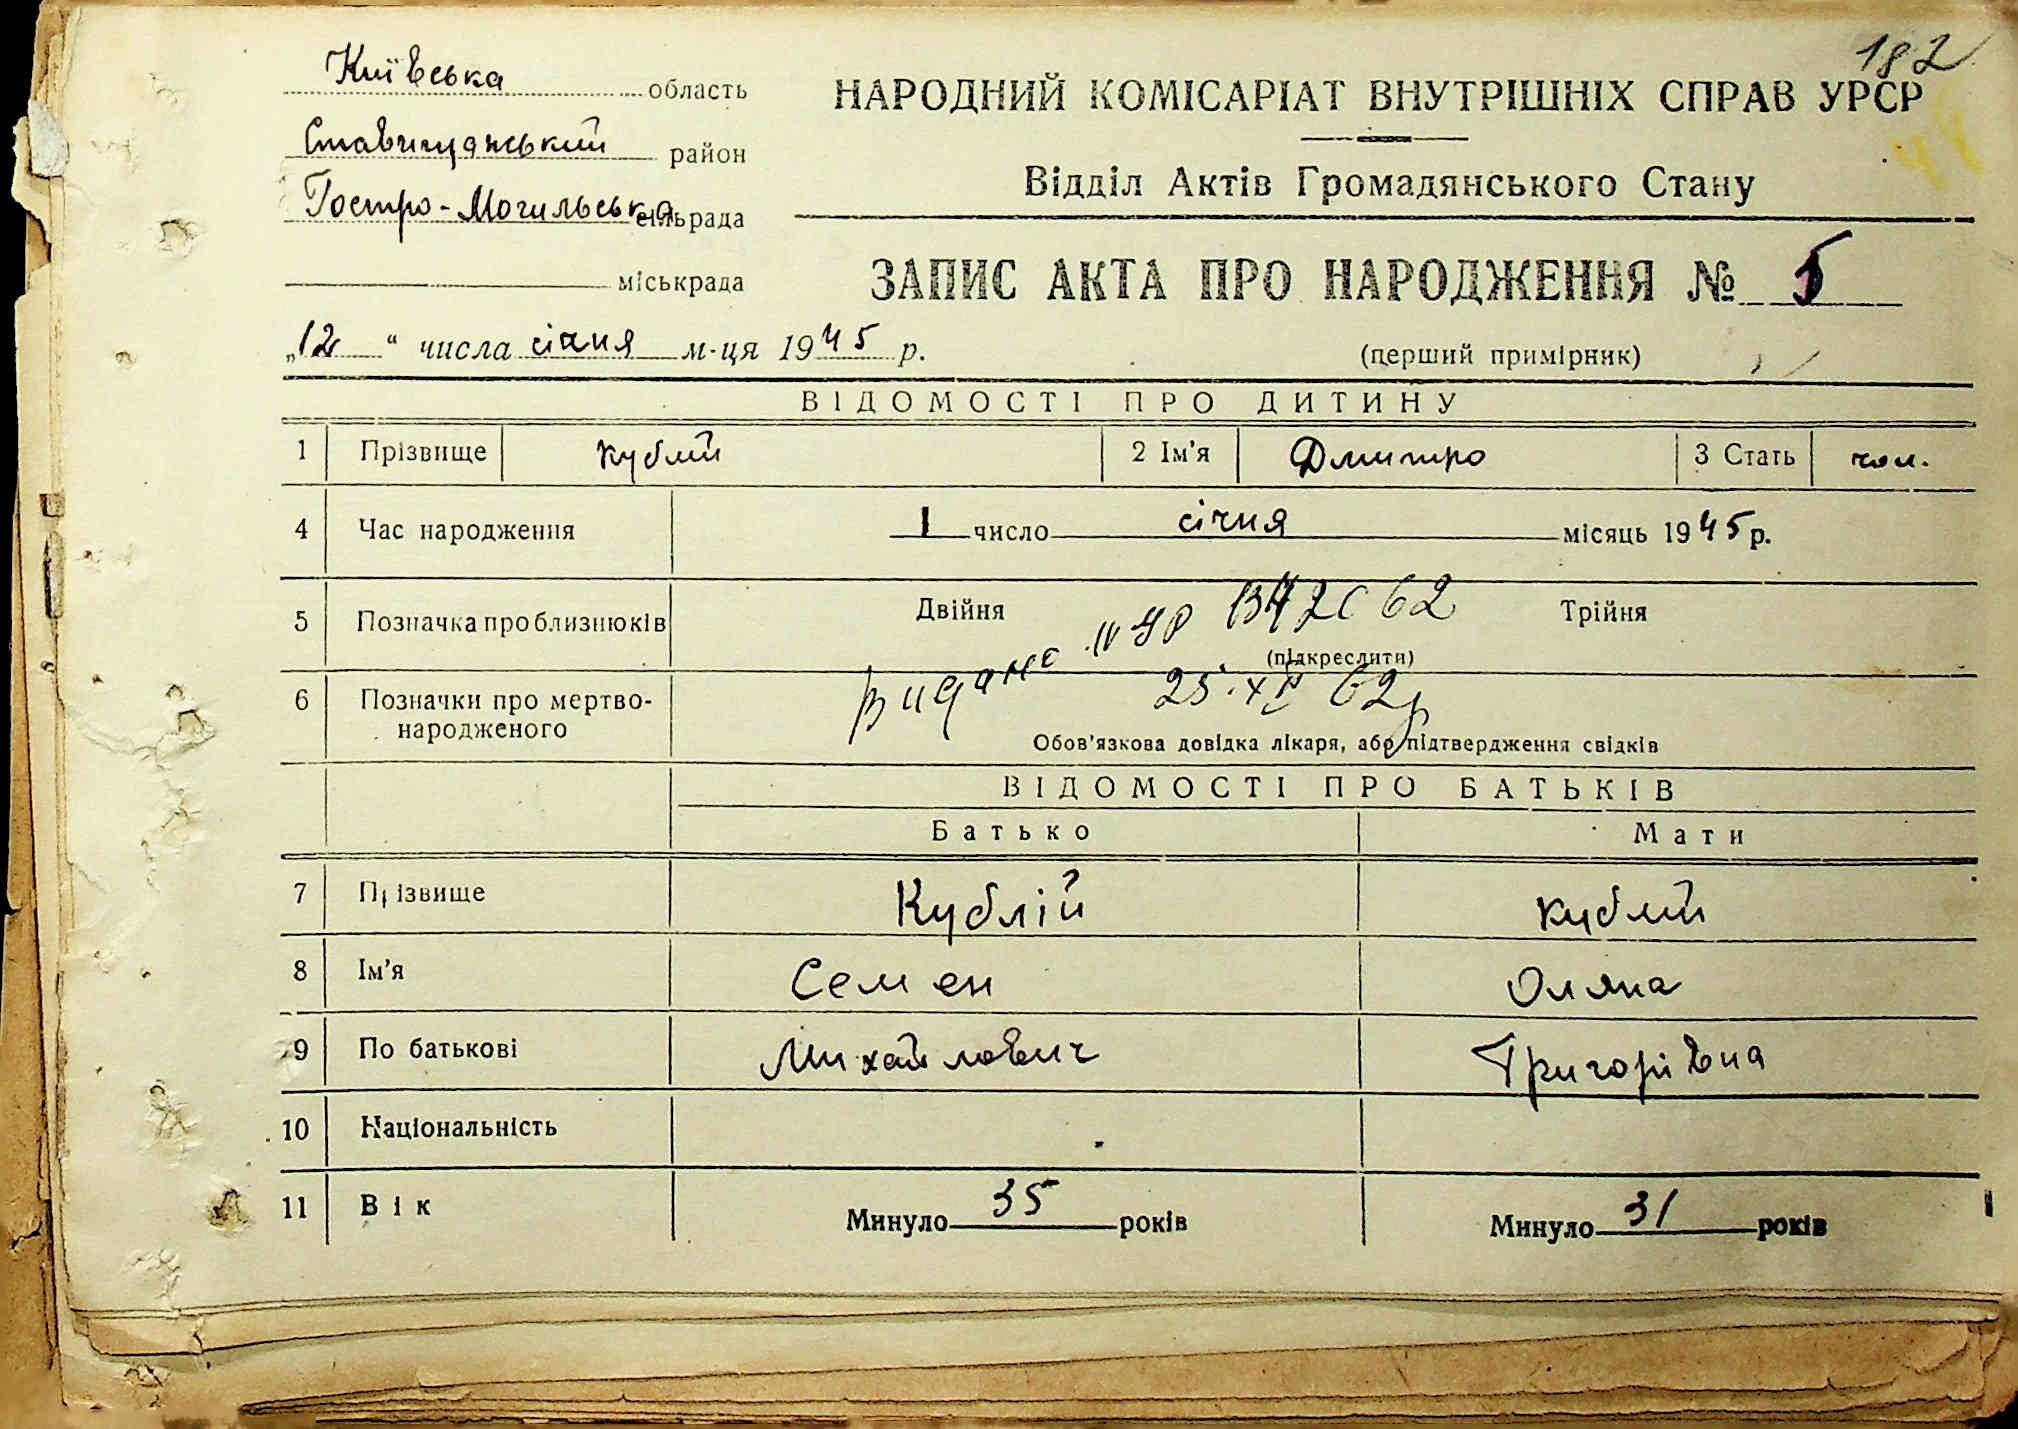 182
Київська область
Ставищанський район
Гостро-Могильська сільрада
міськрада
НАРОДНИЙ КОМІСАРІАТ ВНУТРІШНІХ СПРАВ УРСР
Відділ Актів Громадянського Стану
ЗАПИС АКТА ПРО НАРОДЖЕННЯ № 5
„12“ числа січня м-ця 1945 р.
(перший примірник)
ВІДОМОСТІ ПРО ДИТИНУ
1 Прізвище Кублій 2 Ім'я Дмитро 3 Стать чол.
4 Час народження 1 число січня місяць 1945 р.
5 Позначка про близнюків Двійня Трійня
(підкреслити)
6 Позначки про мертво-
народженого
25 62 р
Обов'язкова довідка лікаря, або підтвердження свідків
ВІДОМОСТІ ПРО БАТЬКІВ
Батько Мати
7 Прізвище Кублій Кублій
8 Ім'я Семен Оляна
9 По батькові Михайлович Григорівна
10 Національність
11 Вік Минуло 35 років Минуло 31 років